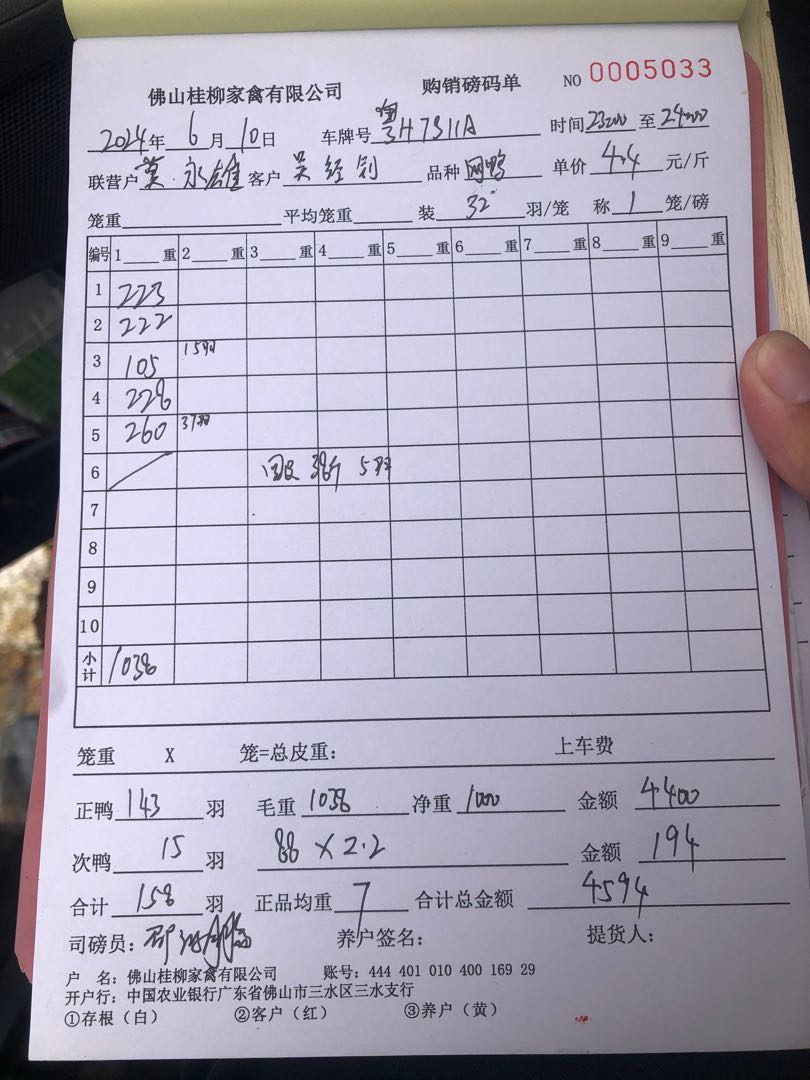 佛山桂柳家禽有限公司 购销磅码单 NO 0005033
2024年 6月 10日 车牌号 H7311A 时间 23:00 至 24:00
联营户 莫永雄 客户 吴经钊 品种 网鸭 单价 4.4 元/斤
笼重 平均笼重 装 32 羽/笼 称 1 笼/磅
编号 1 重 2 重 3 重 4 重 5 重 6 重 7 重 8 重 9 重
1 223
2 222
3 105 15羽
4 228
5 260 37羽
6 回皮 38斤 5羽
7
8
9
10
小计 1038
笼重 X 笼=总皮重: 上车费
正鸭 143 羽 毛重 1038 净重 1000 金额 4400
次鸭 15 羽 88×2.2 金额 194
合计 158 羽 正品均重 7 合计总金额 4594
司磅员: 养户签名: 提货人:
户 名: 佛山桂柳家禽有限公司 账号: 444 401 010 400 169 29
开户行: 中国农业银行广东省佛山市三水区三水支行
①存根（白） ②客户（红） ③养户（黄）